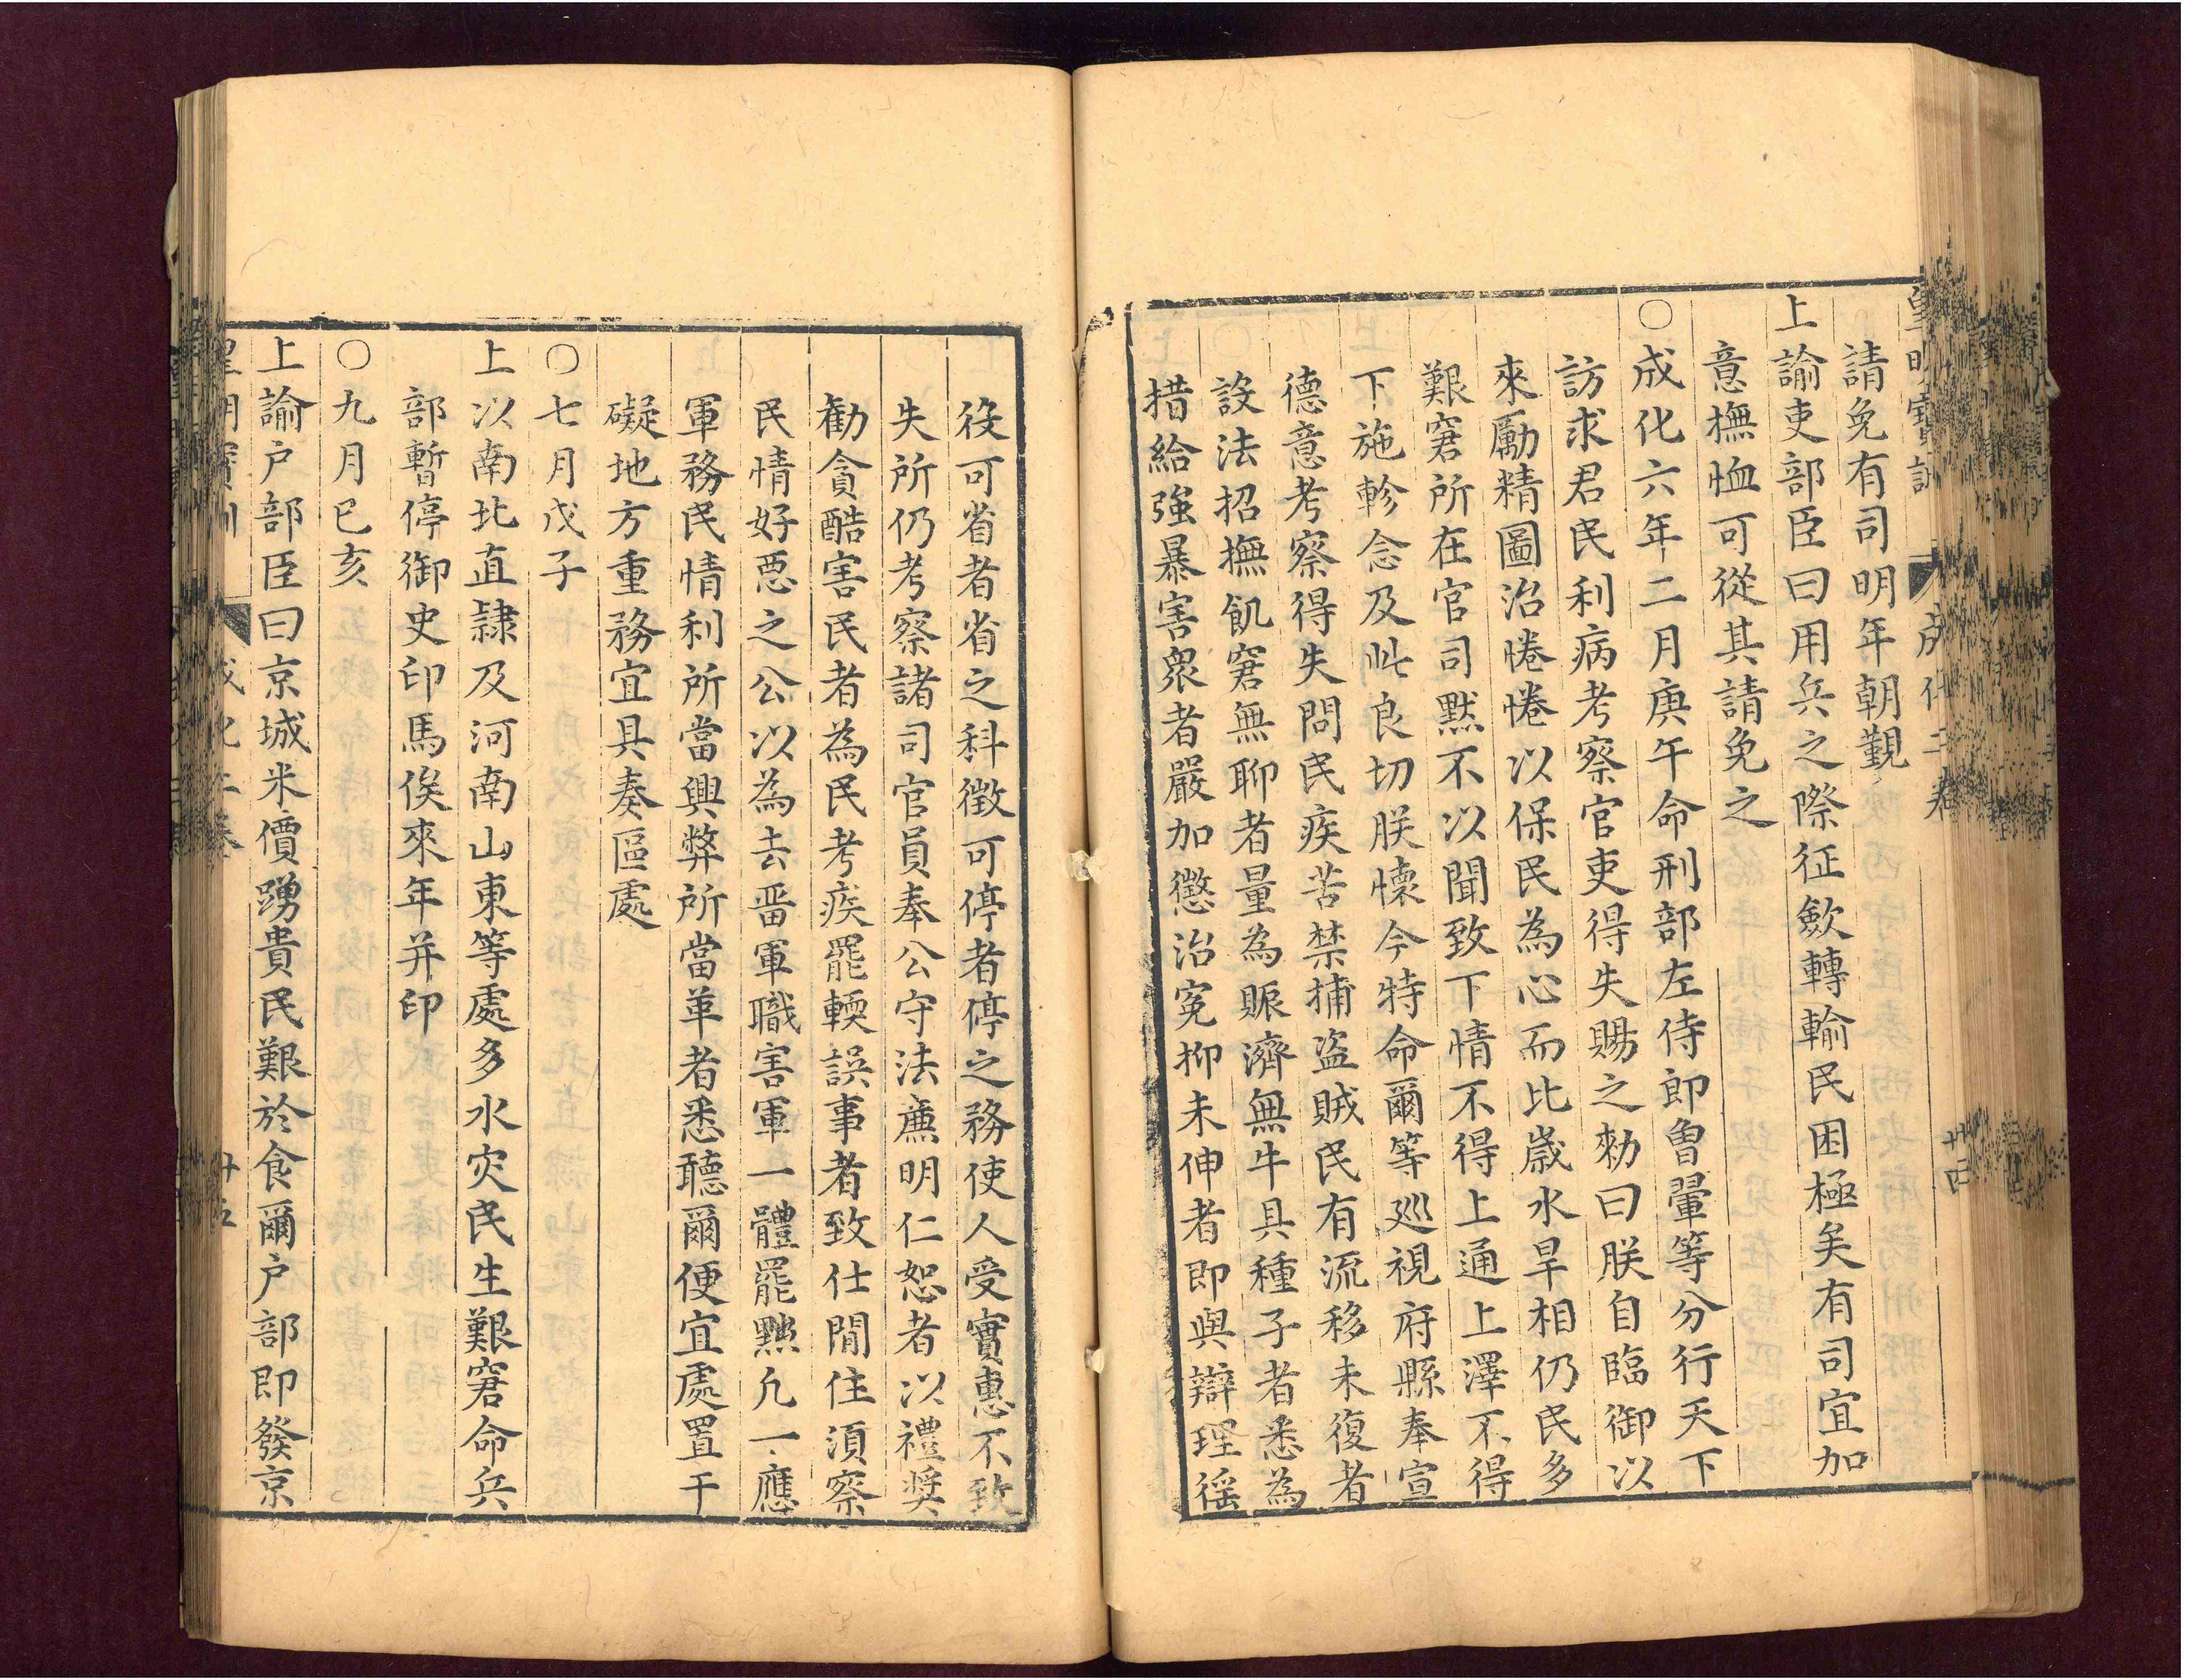 皇明寶訓 成化二卷 卅四
請免有司明年朝覲
上諭吏部臣曰用兵之際征歛轉輸民困極矣有司宜加
意撫恤可從其請免之
○成化六年二月庚午命刑部左侍郎曾翬等分行天下
訪求君民利病考察官吏得失賜之勑曰朕自臨御以
來勵精圖治惓惓以保民為心而比歲水旱相仍民多
艱窘所在官司默不以聞致下情不得上通上澤不得
下施軫念及此良切朕懷今特命爾等廵視府縣奉宣
德意考察得失問民疾苦禁捕盜賊民有流移未復者
設法招撫飢窘無聊者量為賑濟無牛具種子者悉為
措給強暴害眾者嚴加懲治冤抑未伸者即與辯理徭
役可省者省之科徵可停者停之務使人受實惠不致
失所仍考察諸司官員奉公守法廉明仁恕者以禮奬
勸貪酷害民者為民考疾罷輭誤事者致仕閒住湏察
民情好惡之公以為去畱軍職害軍一體罷黜凡一應
軍務民情利所當興弊所當革者悉聽爾便宜處置干
礙地方重務宜具奏區處
○七月戊子
上以南北直隸及河南山東等處多水灾民生艱窘命兵
部暫停御史印馬俟來年并印
○九月已亥
上諭户部臣曰京城米價踴貴民艱於食爾户部即發京
皇明寶訓 成化二卷 卅五